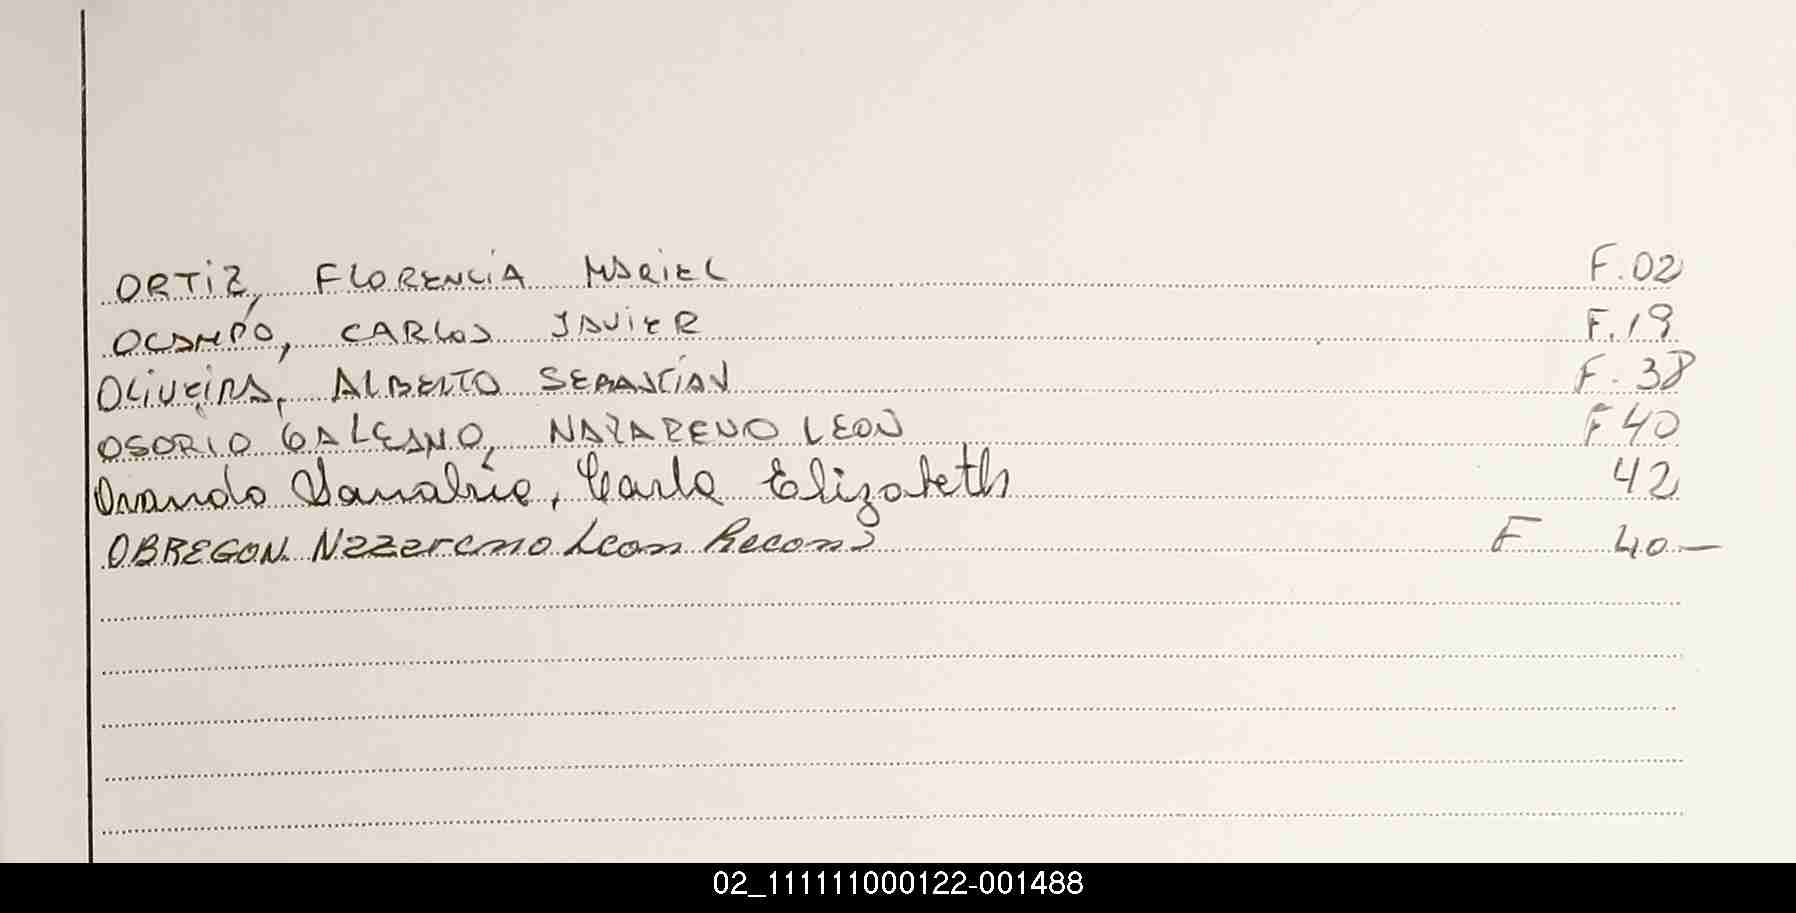 ORTIZ, FLORENCIA MARIEL F.02
OCAMPO, CARLOS JAVIER F.19
OLIVEIRA, ALBERTO SEBASTIAN F.38
OSORIO GALEANO, NAZARENO LEON F 40
Ovando Sanabria, Carla Elizabeth 42
OBREGON Nazareno Leon Recon F 40—
02_111111000122-001488